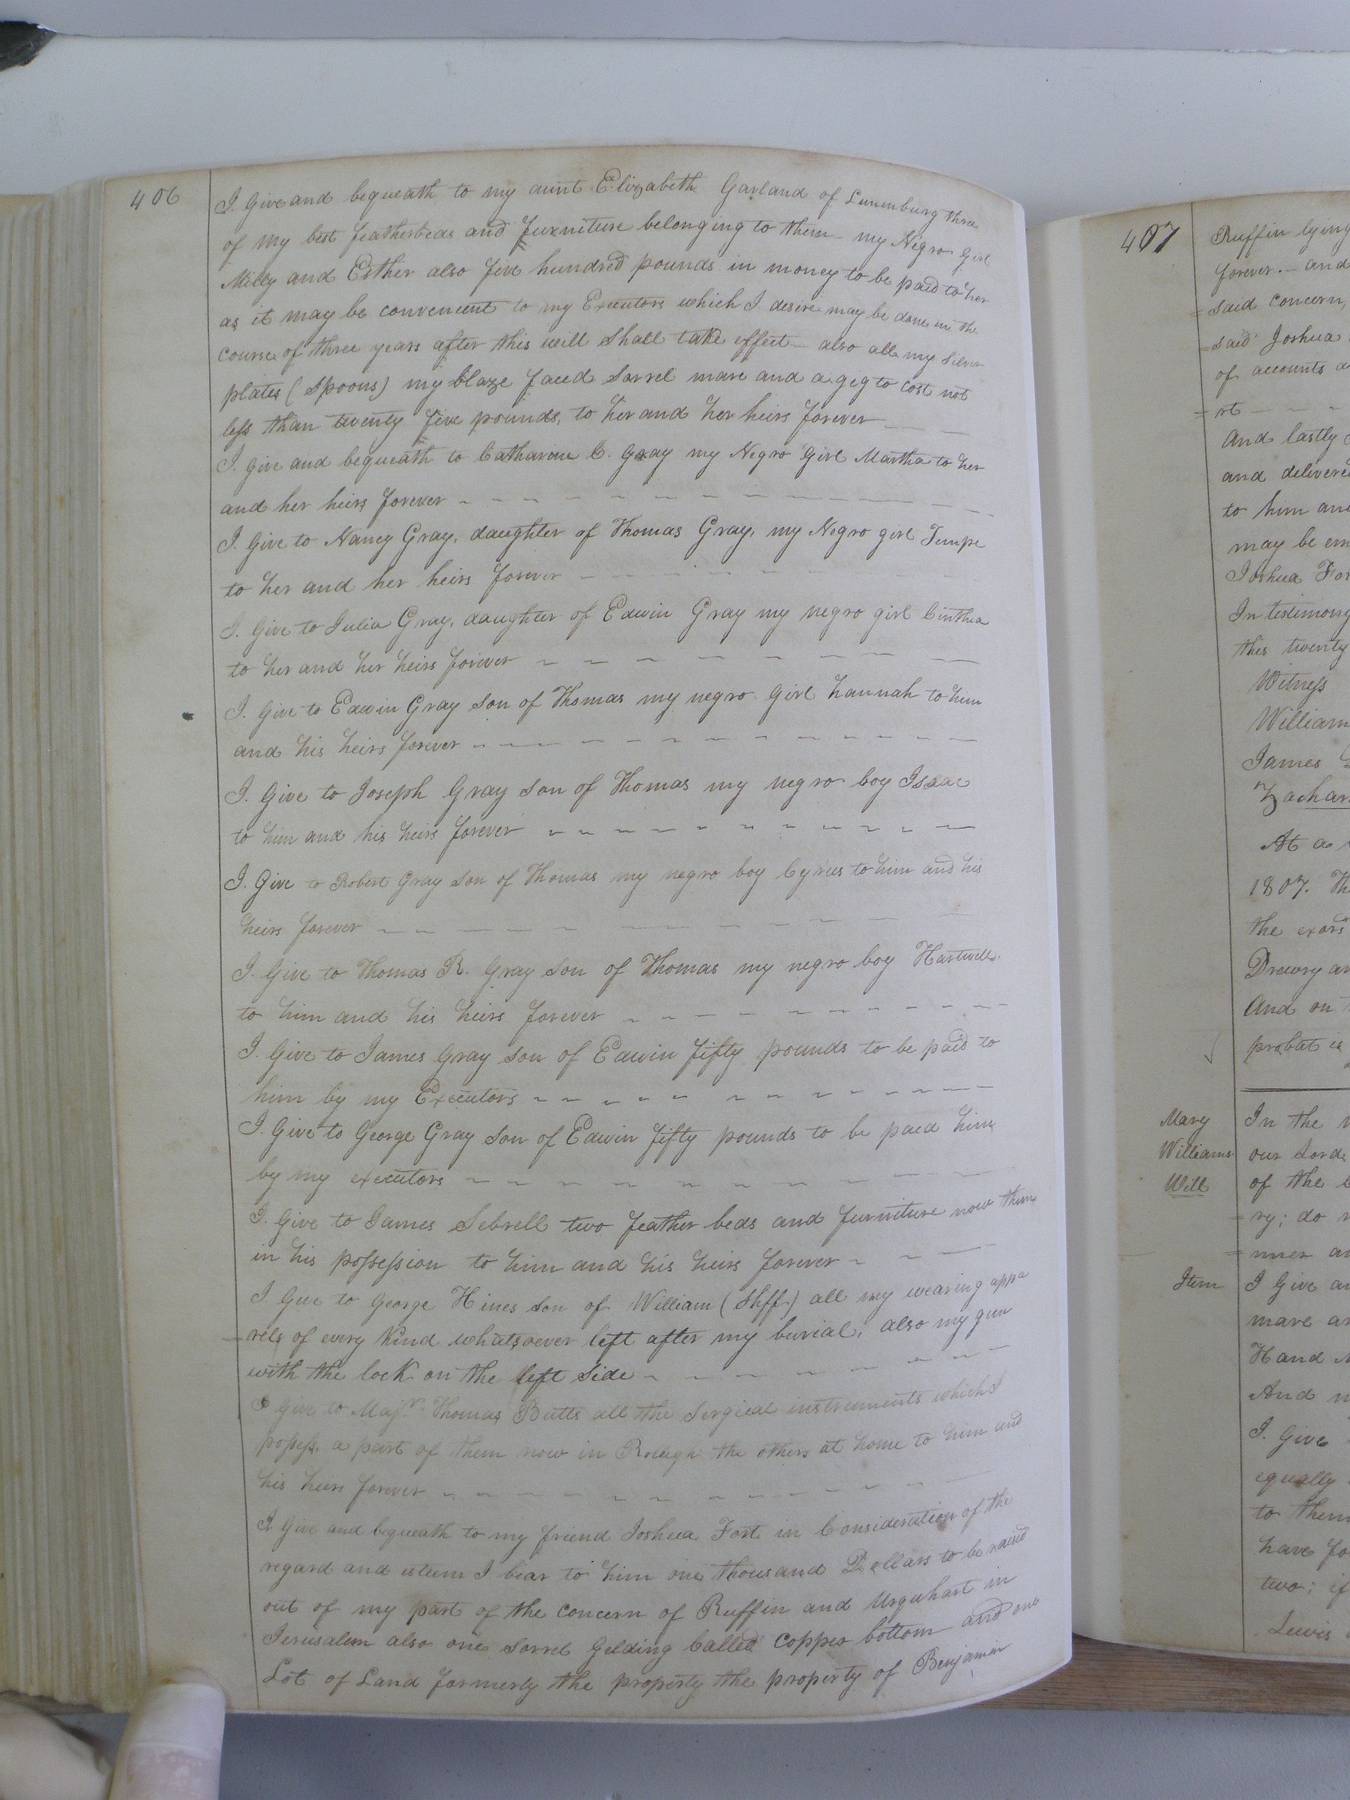 406
I. Give and bequeath to my aunt Elizabeth Garland of Lunenburg three
of my best featherbeds and furniture belonging to them my Negro Girl
Milly and Esther also five hundred pounds in money to be paid to her
as it may be convenient to my Executors which I desire may be done in the
course of three years after this will shall take effect — also all my silver
plates (Spoons) my blaze faced Sorrel mare and a geg to cost not
less than twenty five pounds, to her and her heirs forever
I. Give and bequeath to Catharine C. Gray my Negro Girl Martha to her
and her heirs forever
I. Give to Nancy Gray, daughter of Thomas Gray, my Negro girl Tempe
to her and her heirs forever
I. Give to Julia Gray, daughter of Edwin Gray my negro girl Cinthea
to her and her heirs forever
I. Give to Edwin Gray son of Thomas my negro Girl hannah to him
and his heirs forever
I. Give to Joseph Gray son of Thomas my negro boy Isaac
to him and his heirs forever
I. Give to Robert Gray son of Thomas my negro boy Cyrus to him and his
heirs forever
I. Give to Thomas R. Gray son of Thomas my negro boy Hartwell
to him and his heirs forever
I. Give to James Gray son of Edwin fifty pounds to be paid to
him by my Executors
I. Give to George Gray son of Edwin fifty pounds to be paid him
by my executors
I. Give to James Sebrell two feather beds and furniture now there
in his possession to him and his heirs forever
I Give to George Hines son of William (Shff.) all my wearing appa
rels of every Kind whatsoever left after my burial, also my gun
with the lock on the left side
I give to Majr. Thomas Butts all the Sergical instruments which I
possess, a part of them now in Raleigh the others at home to him and
his heirs forever
I Give and bequeath to my friend Joshua Fort in Consideration of the
regard and esteem I bear to him one thousand Dollars to be raised
out of my part of the concern of Ruffin and Urquhart in
Jerusalem also one Sorrel Gelding Called copper bottom and one
Lot of Land formerly the property the property of Benjamin
407
Ruffin lying
forever. — and
said concern,
said Joshua
of accounts
rt
And lastly
and delivered
to him and
may be em
Joshua For
In testimony
this twenty
Witness
William
James
Zachar
At a
1807. Th
the exors
Drewry an
And on
probat is
Mary
Williams
Will
In the
our Lord
of the
ry; do
nner an
Item
I Give an
mare an
Hand
And
I. Give
equally
to them
have fo
two; if
Lewis